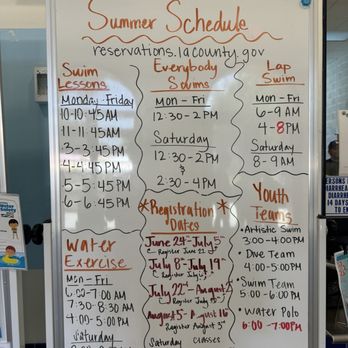 Summer Schedule
reservations.lacounty.gov
Swim
Lessons
Monday - Friday
10-10:45AM
11-11:45AM
3-3:45PM
4-4:45PM
5-5:45PM
6-6:45PM
Everybody
Swims
Mon - Fri
12:30-2PM
Saturday
12:30-2PM
&
2:30-4PM
Lap
Swim
Mon - Fri
6-9AM
4-8PM
Saturday
8-9AM
Water
Exercise
Mon - Fri
6:00-7:00AM
7:30-8:30AM
4:00-5:00PM
Saturday
*Registration*
Dates
June 24 - July 5th
Register June
July 8 - July 19th
Register July
July 22nd - August 2nd
Register July
August 5 - August 16
Register August 3rd
Saturday classes
Youth
Teams
• Artistic Swim
3:00-4:00PM
• Dive Team
4:00-5:00PM
• Swim Team
5:00-6:00PM
• Water Polo
6:00-7:00PM
PERSONS
DIARRHEA
DIARRHE
14 DAYS
TO ENT